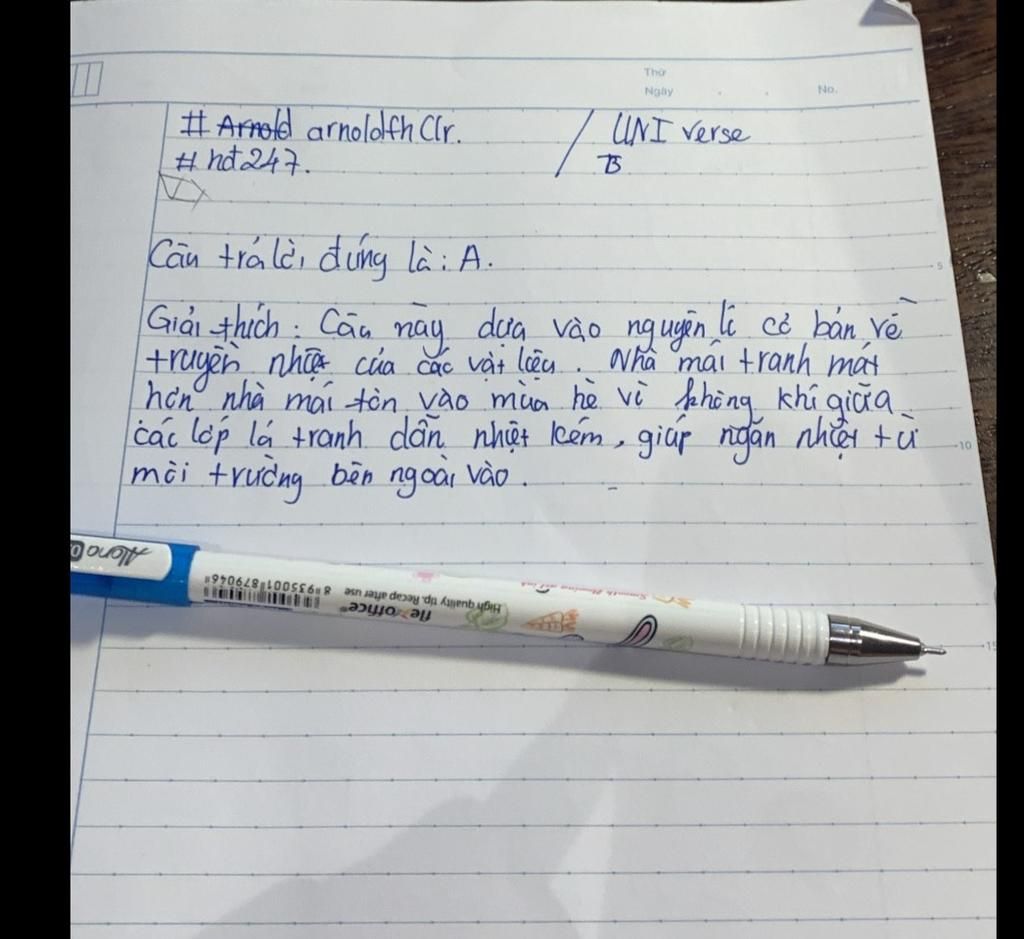 Thứ
Ngày . . No.
# Arnold arnoldfhClr. / UNI verse
# hđ247. B
Câu trả lời đúng là: A.
5
Giải thích: Câu này dựa vào nguyên lí cơ bản về
truyền nhiệt của các vật liệu. Nhà mái tranh mát
hơn nhà mái tôn vào mùa hè vì không khí giữa
các lớp lá tranh dẫn nhiệt kém, giúp ngăn nhiệt từ
10
môi trường bên ngoài vào.
Alona 0.
8 935001 879046
flexoffice®
High quality tip. Recap after use
15